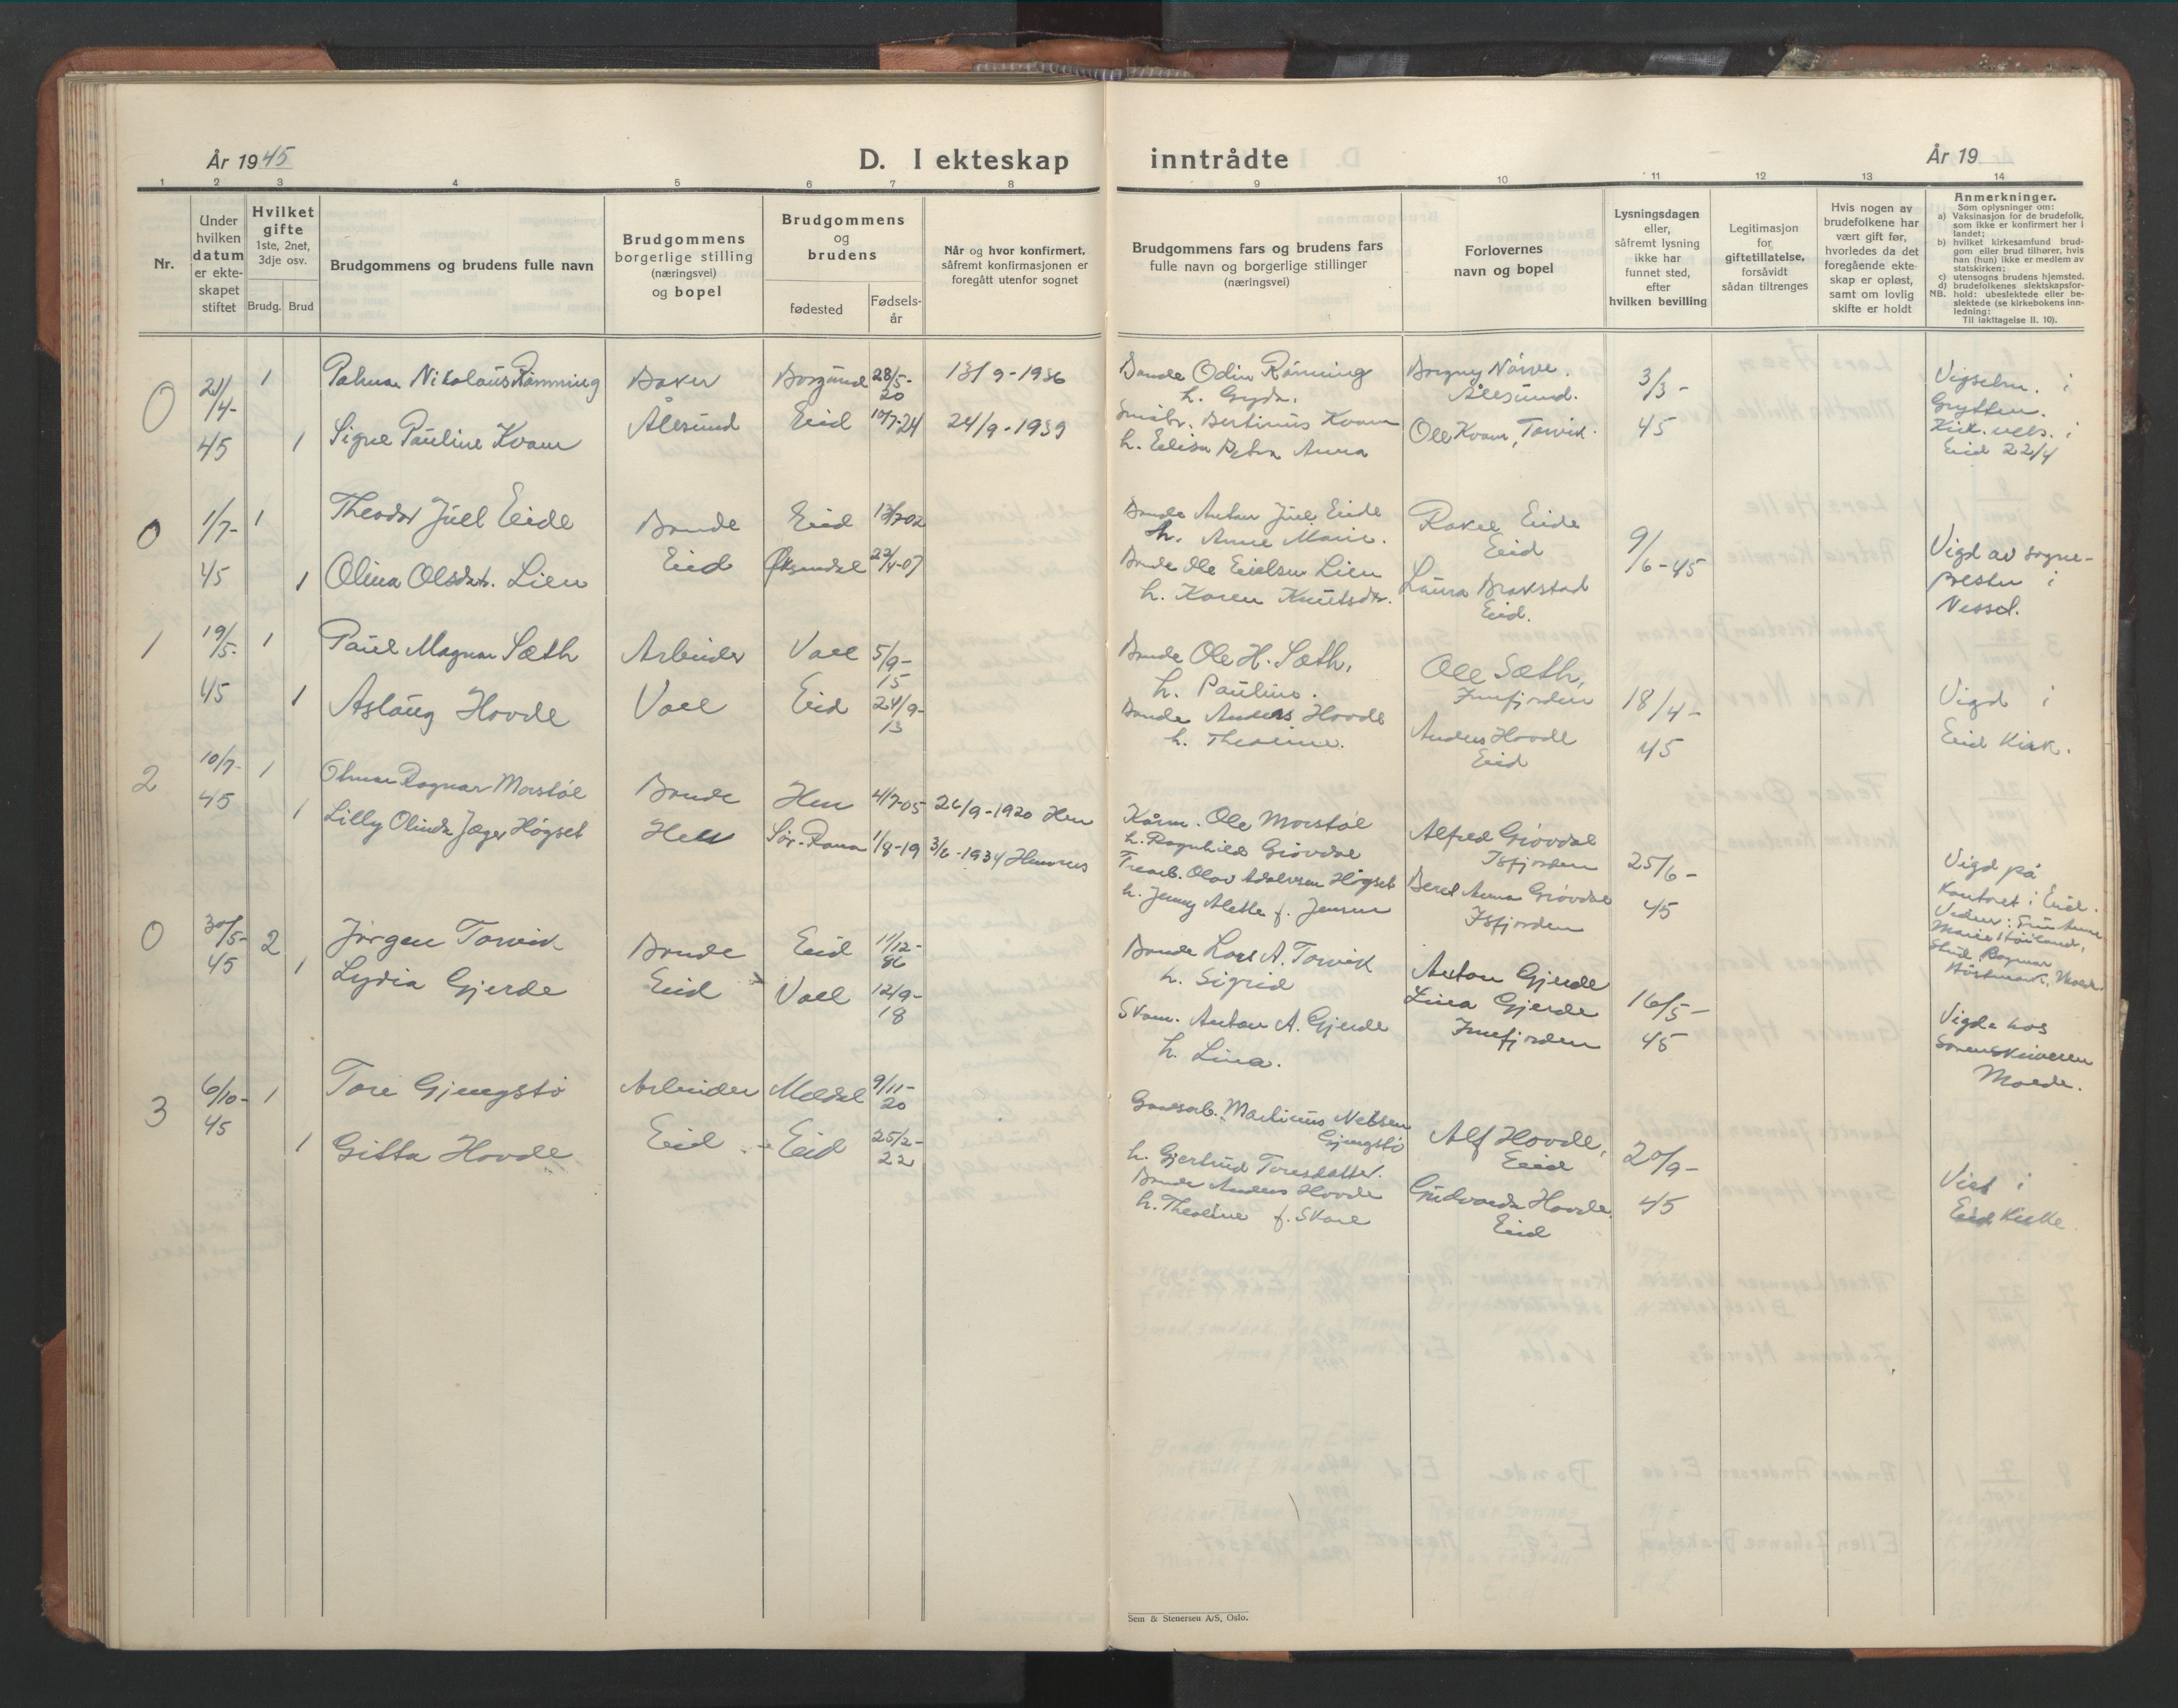 År 1945
D. I ekteskap
inntrådte
År 19
1 2 3 4 5 6 7 8 9 10 11 12 13 14
Nr.
Under
hvilken
datum
er ekte-
skapet
stiftet
Hvilket
gifte
1ste, 2net,
3dje osv.
Brudg.
Brud
Brudgommens og brudens fulle navn
Brudgommens
borgerlige stilling
(næringsvei)
og bopel
Brudgommens
og
brudens
fødested
Fødsels-
år
Når og hvor konfirmert,
såfremt konfirmasjonen er
foregått utenfor sognet
Brudgommens fars og brudens fars
fulle navn og borgerlige stillinger
(næringsvei)
Forlovernes
navn og bopel
Lysningsdagen
eller,
såfremt lysning
ikke har
funnet sted,
efter
hvilken bevilling
Legitimasjon
for
giftetillatelse,
forsåvidt
sådan tiltrenges
Hvis nogen av
brudefolkene har
vært gift før,
hvorledes da det
foregående ekte-
skap er opløst,
samt om lovlig
skifte er holdt
Anmerkninger.
Som oplysninger om:
a) Vaksinasjon for de brudefolk,
som ikke er konfirmert her i
landet;
b) hvilket kirkesamfund brud-
gom eller brud tilhører, hvis
han (hun) ikke er medlem av
statskirken;
c) utensogns brudens hjemsted.
d) brudefolkenes slektskapsfor-
NB. hold: ubeslektede eller be-
slektede (se kirkebokens inn-
ledning;
Til iakttagelse II. 10).
0
21/
/4-
45
1
1
Palmar Nikolaus Rønning
Signe Pauline Kvam
Baker
Ålesund
Borgund
Eid
28/5-
20
10/7-24
13/9-1936
24/9-1939
Bonde Odin Rønning
h. Gyda.
Småbr. Bertinus Kvam
h. Edisa Petra Anna
Borgny Nørve.
Ålesund.
Ole Kvam, Torvik.
3/3-
45
i
Grytten.
Kirk. vels. i
Eid 22/4
0
1/7-
45
1
1
Theodor Juel Eide
Olina Olsdatr. Lien
Bonde
Eid
Eid
Øksendal
13/7-02
22/4-07
Bonde Anton Juel Eide
h. Anne Marie.
Bonde Ole Lien
h. Karen Knutsdtr.
Rakel Eide
Eid
Laura Brakstad
Eid.
9/
/6-45
Vigd av sogne-
presten i
Nesset.
1
19/
/5-
45
1
1
Paul Magnar Sæth
Aslaug Hovde
Arbeider
Voll
Voll
Eid
5/9-
15
24/9-
13
Bonde Ole H. Sæth,
h. Pauline.
Bonde Anders Hovde
h. Theoline.
Ole Sæth,
Innfjorden
Anders Hovde
Eid
18/4-
45
Vigd i
Eid Kirk.
2
10/7-
45
1
1
Otmar Ragnar Morstøl
Lilly Olinda Jæger Høgset
Bonde
Hen
Hen
Sør-Rana
4/7-05
1/8-19
26/9-1920 Hen
3/6-1934 Hemnes
Kårm. Ole Morstøl
h. Ragnhild Grøvdal
Trearb. Olav Høgset
h. Jenny Alette f. Jensen
Alfred Grøvdal
Isfjorden
Beret Anna Grøvdal
Isfjorden
25/6-
45
Vigd på
kontoret i Eid.
Vidner: Fru Anne
Marie
Stud. Ragnar
0
30/
/5-
45
2
1
Jørgen Torvik
Lydia Gjerde
Bonde
Eid
Eid
Voll
11/12-
86
12/9-
18
Bonde Lars A. Torvik
h. Sigrid
Skom. Anton A. Gjerde
h. Lina.
Anton Gjerde
Lina Gjerde
Innfjorden
16/5-
45
Vigd hos
Sorenskriveren
Molde.
3
6/10-
45
1
1
Tore Gjengstø
Gitta Hovde
Arbeider
Eid
Meldal
Eid
9/11-
20
25/2-
22
Martinus
Gjengstø
h. Gjertrud Toresdatter.
Bonde Anders Hovde
h. Theoline f. Skare
Alf Hovde,
Eid
Gudvarda Hovde.
Eid
20/9-
45
Viet i
Eid Kirke.
Sem & Stenersen A/S, Oslo.